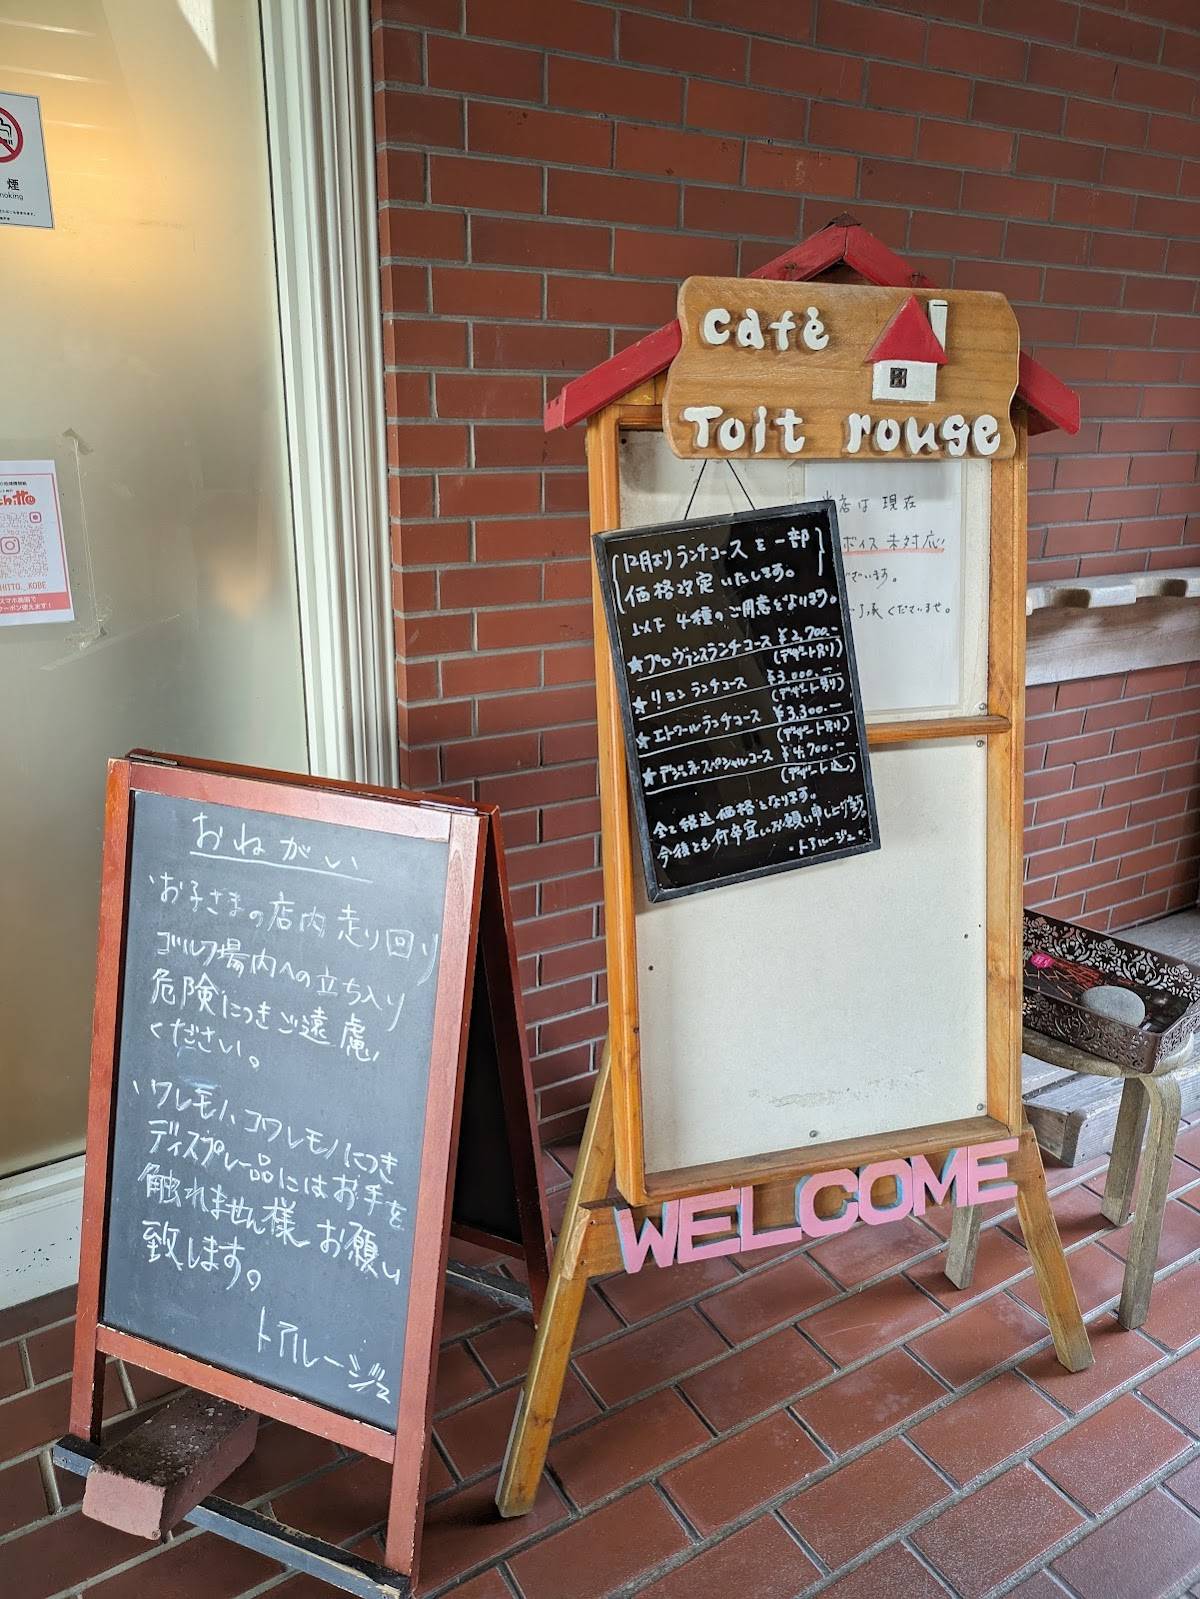 煙
HITTO._KOBE
スマホ画面で
クーポン使えます！
café
Toit rouge
当店は 現在
ボイス未対応
ございます。
了承くださいませ。
12月よりランチコースを一部
価格改定いたします。
以下 4種のご用意となります。
★プロヴァンスランチコース ¥2,700.-
(デザート別り)
★リヨンランチコース ¥3,000.-
(デザート別り)
★エトワールランチコース ¥3,300.-
(デザート別り)
★デジュネスペシャルコース ¥4,700.-
(デザート込)
全て税込価格となります。
今後とも何卒宜しくお願い申し上げます。
・トアルージュ・
WELCOME
おねがい
、お子さまの店内走り回り
ゴルフ場内への立ち入り
危険につきご遠慮
ください。
、ワレモノ、コワレモノにつき
ディスプレー品にはお手を
触れません様お願い
致します。
トアルージュ